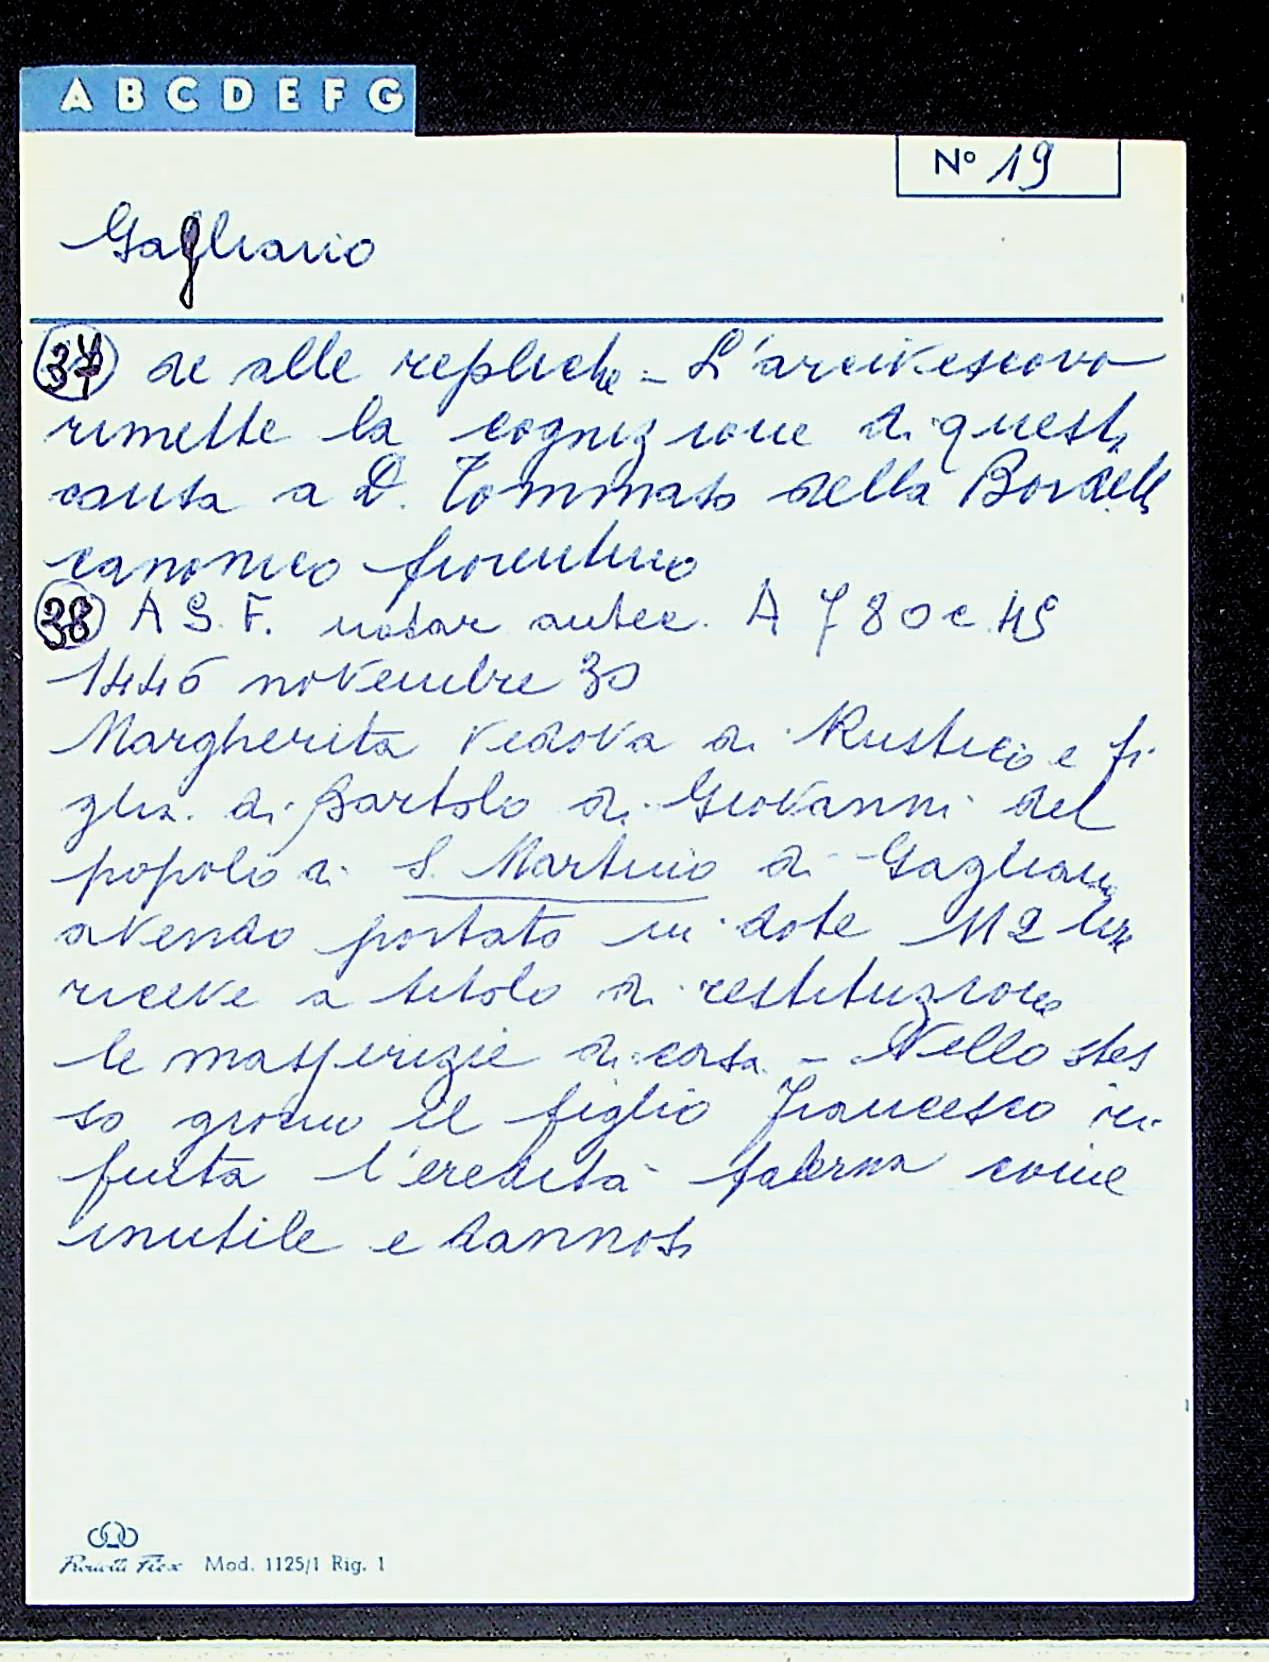 A B C D E F G
Nº 19
Gagliano
37 de alle repliche - L'arcivescovo
rimette la cognizione di questa
causa a D. Tommaso della Bordella
canonico fiorentino
38 A S. F. notar antec. A 780 c. 49
1446 novembre 30
Margherita vedova di Rustico e fi
glia di Bartolo di Giovanni del
popolo di S. Martino di Gagliano
avendo portato in dote 112 lire
riceve a titolo di restituzione
le masserizie di casa. - Nello stes
so giorno il figlio Francesco ri
fiuta l'eredità paterna come
inutile e dannosa
Mod. 1125/1 Rig. 1